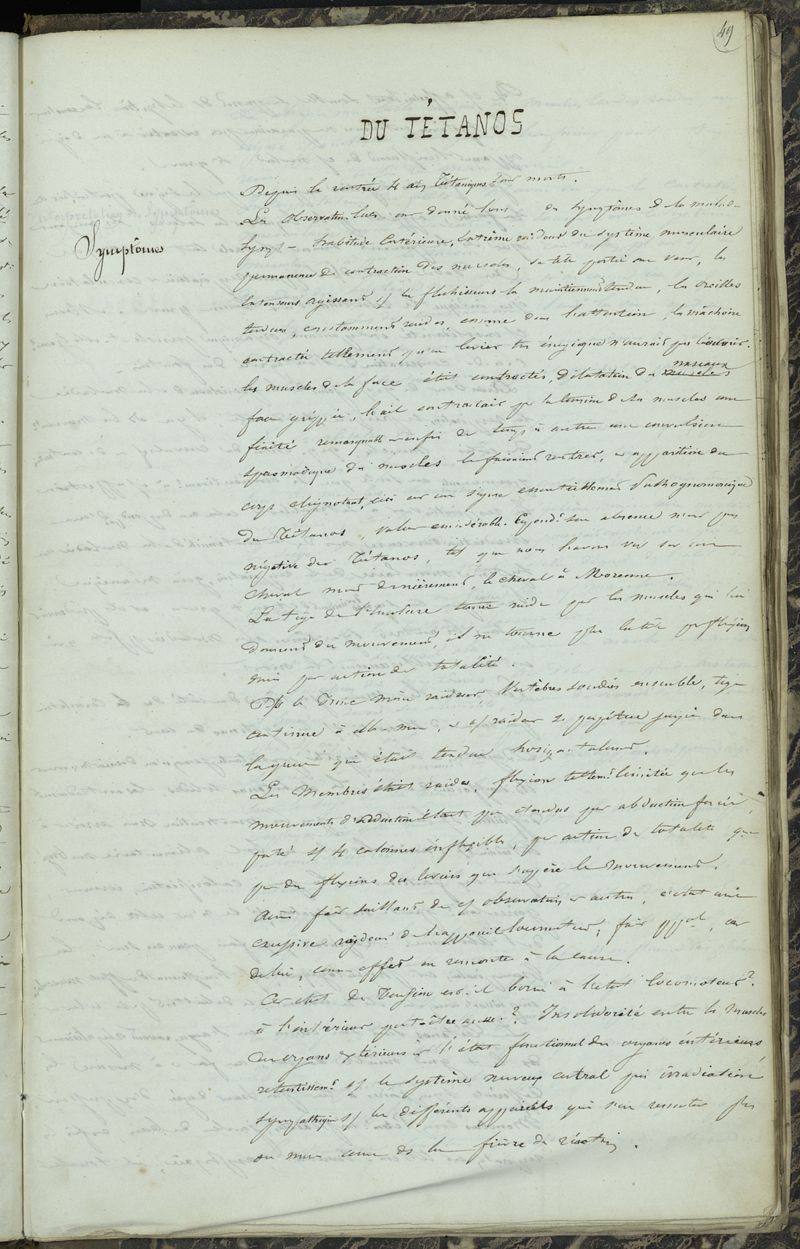 49
DU TÉTANOS
Depuis la rentrée 4 Tétaniques sont morts.
Les observations ont donné lieu Symptômes de la maladie
Symptômes
habitude extérieure, extrême raideur du système musculaire
permanence de contraction des muscles, sa tête portée au vent, les
extenseurs agissant les fléchisseurs la maintiennent tendue, les oreilles
tendues, constamment raides, comme dans l'attention, la mâchoire
contractée tellement qu'un levier très énergique n'aurait pas l'ouvrir.
les muscles de la face était contractés, dilatation des muscles naseaux
face grippée, l'œil contractait par la tension de ses muscles une
fixité remarquable enfin de temps à autre une convulsion
spasmodique des muscles le faisaient rentrer, apparition du
corps clignotant, ceci est un signe essentiellement Pathognomonique
du Tétanos, valeur considérable. Cependt son absence n'est pas
négative du Tétanos, tel que nous l'avons vu sur un
cheval mort dernièrement, le cheval à
La tige de l'encolure raide par les muscles qui lui
donnent du mouvement, il ne tourne plus la tête par flexion
mais par action de totalité.
le Tronc même raideur, Vertèbres soudées ensemble, tige
continue à elle même, raideur se perpétue jusque dans
la queue qui était tendue horizontalement.
Les Membres était raides, flexion tellemt limitée que les
mouvements d'adduction étant par abduction forcée
4 colonnes inflexibles, par action de totalité que
par des flexions des leviers que s'opère le mouvement.
Ainsi fait saillant de observations et autres, c'était une
excessive raideur de l'appareil locomoteur, fait ppal, car
de lui, comme effet on remonte à la cause.
Cet état de Tension est-il borné à l'état locomoteur?
à l'intérieur peut être aussi? Insolidarité entre les muscles
organes extérieurs et l'état fonctionnel des organes intérieurs
retentissemt le système nerveux central puis irradiation
sympathique les différents appareils qui s'en ressentent plus
ou moins comme la fièvre de réaction.